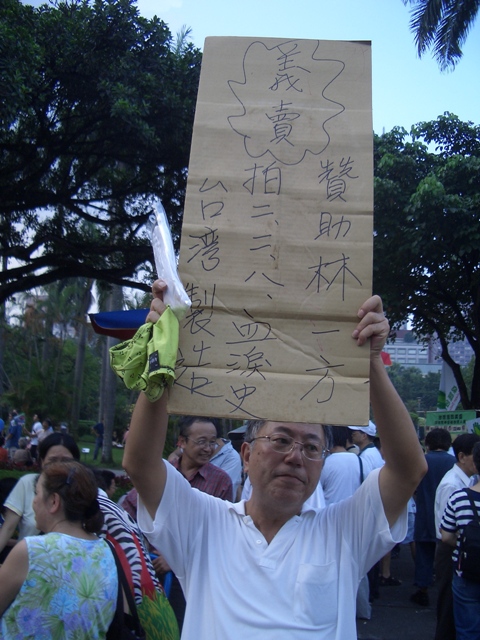 義賣
贊助林一方
拍二、二、八、血淚史
台灣製造